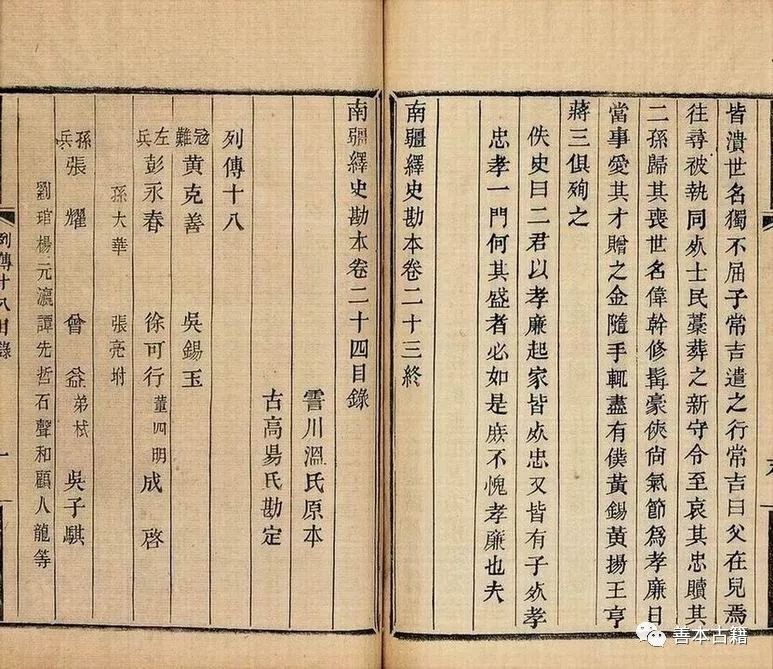 皆潰世名獨不屈子常吉遣之行常吉曰父在兒焉
往尋被執同𣦸士民藁葬之新守令至哀其忠贖其
二孫歸其喪世名偉幹修髯豪俠尚氣節爲孝廉日
當事愛其才贈之金隨手輒盡有僕黃錫黃揚王亨
蔣三俱殉之
佚史曰二君以孝廉起家皆𣦸忠又皆有子𣦸孝
忠孝一門何其盛者必如是庻不愧孝廉也夫
南疆繹史勘本卷二十三終
南疆繹史勘本卷二十四目錄
霅川溫氏原本
古高昜氏勘定
列傳十八
寇難 黃克善 吳錫玉
左兵 彭永春 徐可行 董四明 成啓
孫大華 張亮坿
孫兵 張耀 曾益 弟栻 吳子騏
劉琯楊元瀛譚先哲石聲和顧人龍等
列傳十八目錄 一
善本古籍